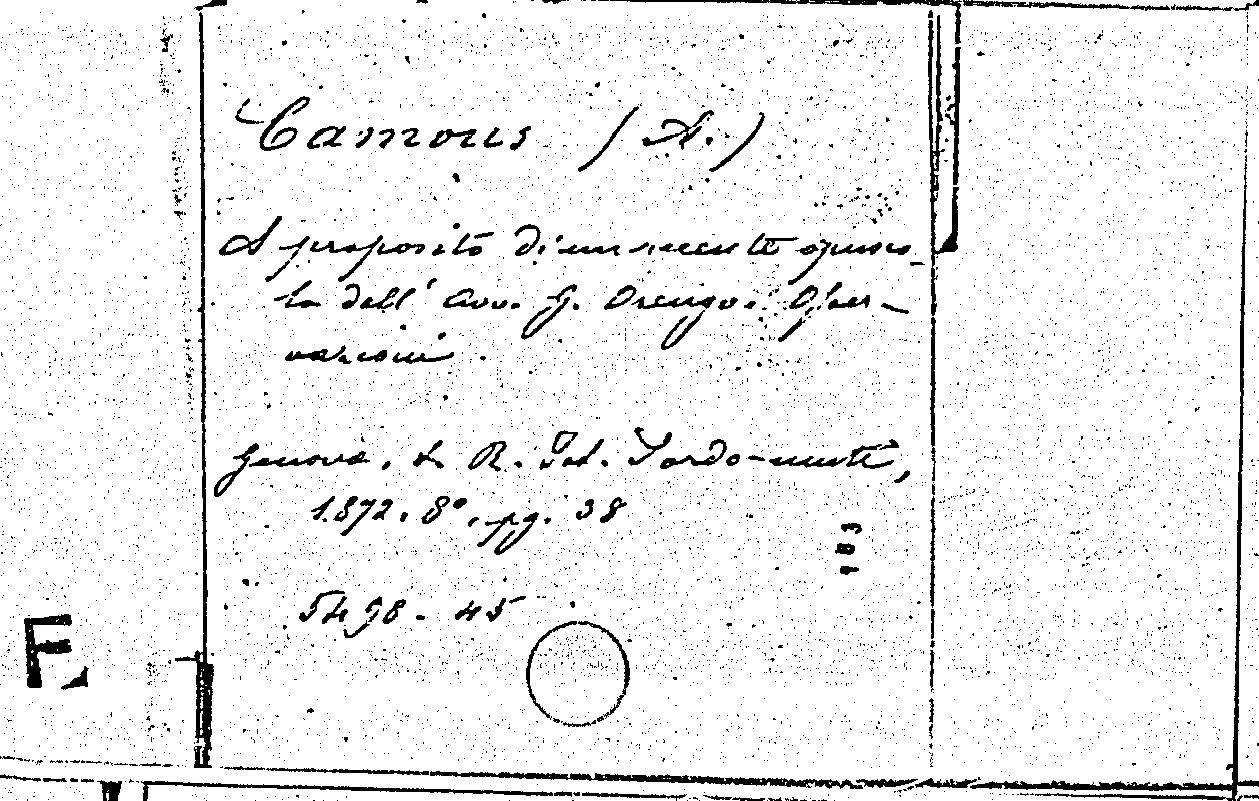 Camous (A.)
A proposito di un recente opusco-
lo dell' Avv. G. Orengo. Osser-
vazioni.
Genova, St. R. Ist. Sordo-muti,
1872. 8°. pg. 38
183
5498. 45
F.